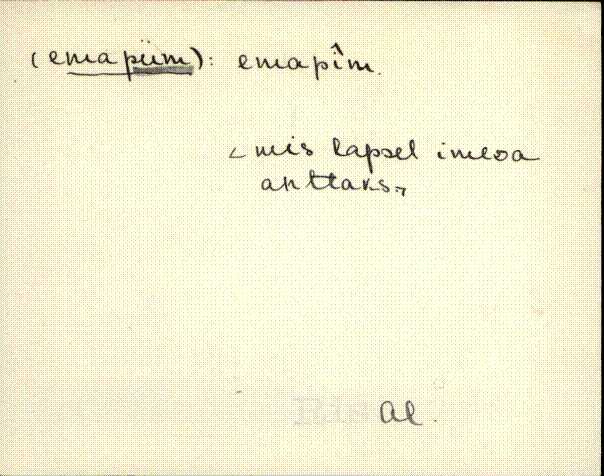 (emapiim): emapîm.
< mis lapsel imeda
anttaks. >
Al.